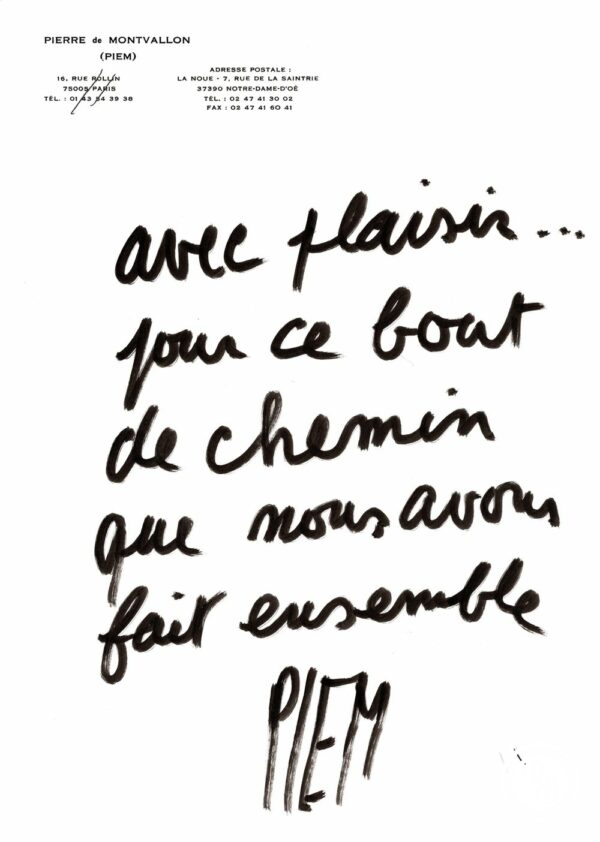 PIERRE de MONTVALLON
(PIEM)
16, RUE ROLLIN
75005 PARIS
TÉL. : 01 43 54 39 38
ADRESSE POSTALE :
LA NOUE - 7, RUE DE LA SAINTRIE
37390 NOTRE-DAME-D'OÉ
TÉL. : 02 47 41 30 02
FAX : 02 47 41 60 41
avec plaisir...
pour ce bout
de chemin
que nous avons
fait ensemble
PIEM